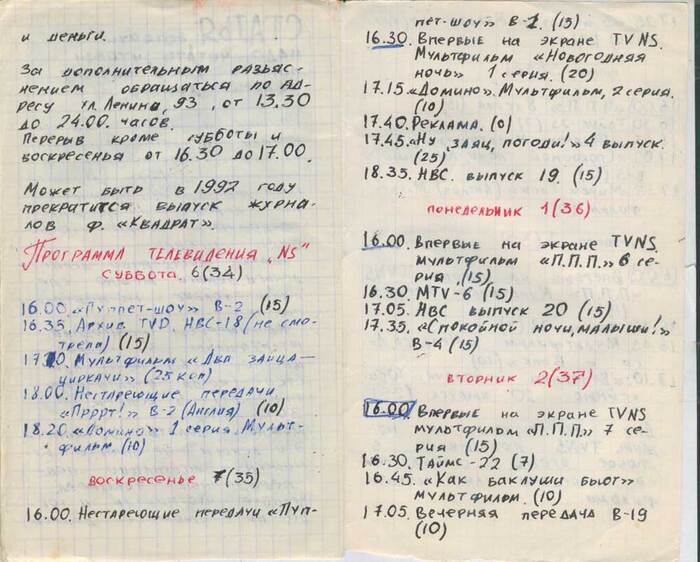 и деньги.
За дополнительным разъяс-
нением обращаться по ад-
ресу ул. Ленина, 93, от 13.30
до 24.00. часов.
Перерыв кроме субботы и
воскресенья от 16.30 до 17.00.
Может быть в 1992 году
прекратится выпуск журна-
лов ф. «Квадрат».
Программа телевидения „NS"
суббота. 6(34)
16.00. «Пуппет-шоу» В-2 (15)
16.35. Архив TVD. НВС-18 (не смо-
трела) (15)
Мультфильм «Два зайца —
циркачи» (25 коп)
18.00. Нестареющие передачи
«Прррт!» В-2 (Англия) (10)
18.20 «Домино» 1 серия Мульт-
фильм. (10)
воскресенье 7(35)
16.00. Нестареющие передачи «Пуп-
пет-шоу» В-1. (15)
16.30. Впервые на экране TVNS.
Мультфильм «Новогодняя
ночь» 1 серия. (20)
17.15. «Домино». Мультфильм, 2 серия.
(10)
17.40. Реклама. (0)
17.45. «Ну заяц, погоди!» 4 выпуск.
(25)
18.35. НВС. выпуск 19. (15)
понедельник 1(36)
16.00. Впервые на экране TVNS.
мультфильм «П.П.П.» 6 се-
рия. (15)
16.30. MTV-6 (15)
17.05. НВС выпуск 20 (15)
17.35. «Спокойной ночи, малыши!»
В-4 (15)
вторник 2(37)
16.00. Впервые на экране TVNS
мультфильм «П.П.П.» 7 се-
рия (15)
16.30. Таймс-22 (7)
16.45. «Как баклуши бьют»
мультфильм. (10)
17.05. Вечерняя передача В-19
(10)